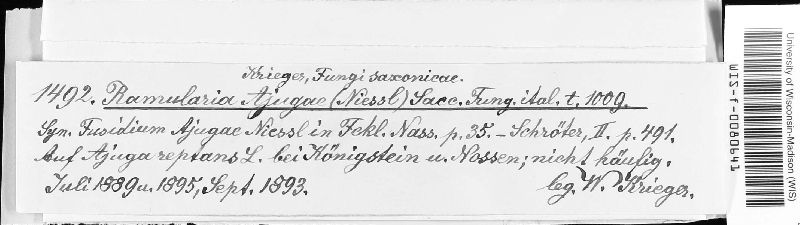 Krieger, Fungi saxonicae.
1492. Ramularia Ajugae (Niessl) Sacc. Fung. ital. t. 1009.
Syn. Fusidium Ajugae Niessl in Fckl. Nass. p. 35. - Schröter, II. p. 491.
Auf Ajuga reptans L. bei Königstein u. Nossen; nicht häufig.
Juli 1889 u. 1895, Sept. 1893. leg. W. Krieger.
University of Wisconsin-Madison (WIS)
WIS-f-0080641